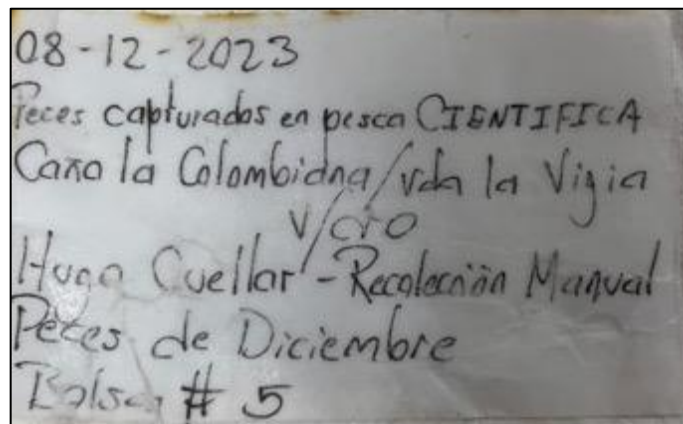 08-12-2023
Peces capturados en pesca CIENTIFICA
Caño la Colombiana/vda la Vigia
V/cio
Hugo Cuellar - Recolección Manual
Peces de Diciembre
Bolsa # 5